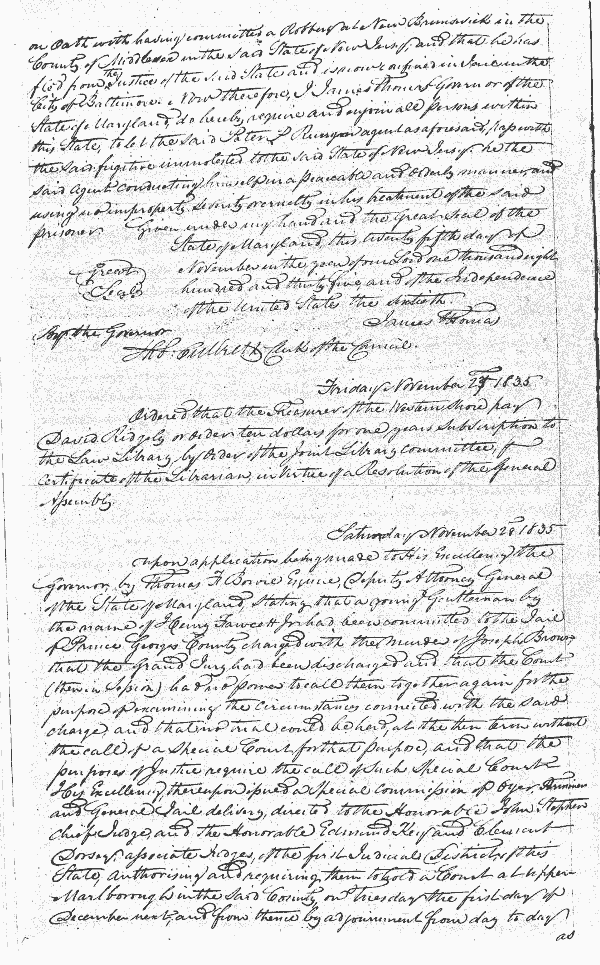 on Oath with having committed a Robbery at New Brunswick in the
County of Middlesex in the said State of New Jersey, and that he has
fled from the Justice of the said State and is now confined in Jail in the
City of Baltimore. Now therefore, I James Thomas Governor of the
State of Maryland, do hereby, require and enjoin all Persons within
this State, to let the said Peter P Runyon agent as aforesaid, pass with
the said fugitive unmolested to the said State of New Jersey. he the
said Agent conducting himself in a peaceable and orderly manner, and
using no improper severity or cruelty in his treatment of the said
prisoner. Given under my hand and the Great Seal of the
State of Maryland this twenty fifth day of
Great
Seal
November in the year of our Lord one thousand eight
hundred and thirty five, and of the Independence
of the United State the sixtieth.
James Thomas
By the Governor
Tho: Culbreth Clerk of the Council.
Friday November 27 1835
Ordered that the Treasurer of the Western Shore pay
David Ridgely or order ten dollars for one years Subscription to
the Law Library, by Order of the Joint Library Committee, &
certificate of the Librarian, in virtue of a Resolution of the General
Assembly.
Saturday November 28 1835
upon application being made to His Excellency the
Governor, by Thomas F Bowie Esquire, Deputy Attorney General
of the State of Maryland, stating, that a young Gentleman by
the name of Henry Fawcett Jr had been committed to the Jail
of Prince Georges County charged with the Murder of Joseph Brown
that the Grand Jury had been discharged and that the Court
(then in Session) had no power to call them together again for the
purpose of examining the circumstances connected with the said
charge, and that no trial could be had, at the then term without
the call of a Special Court for that purpose, and that the
purposes of Justice require the call of such Special Court
His Excellency, thereupon issued a special commission of Oyer, Terminer
and General Jail delivery, directed to the Honorable John Stephen
chief Judge, and the Honorable Edmund Key and Clement
Dorsey, associate Judges, of the first Judicial District of this
State, authorising and requiring them to hold a Court at upper
Marlborough in the said County, on Tuesday the first day of
December next, and from thence by adjournment from day to day
as